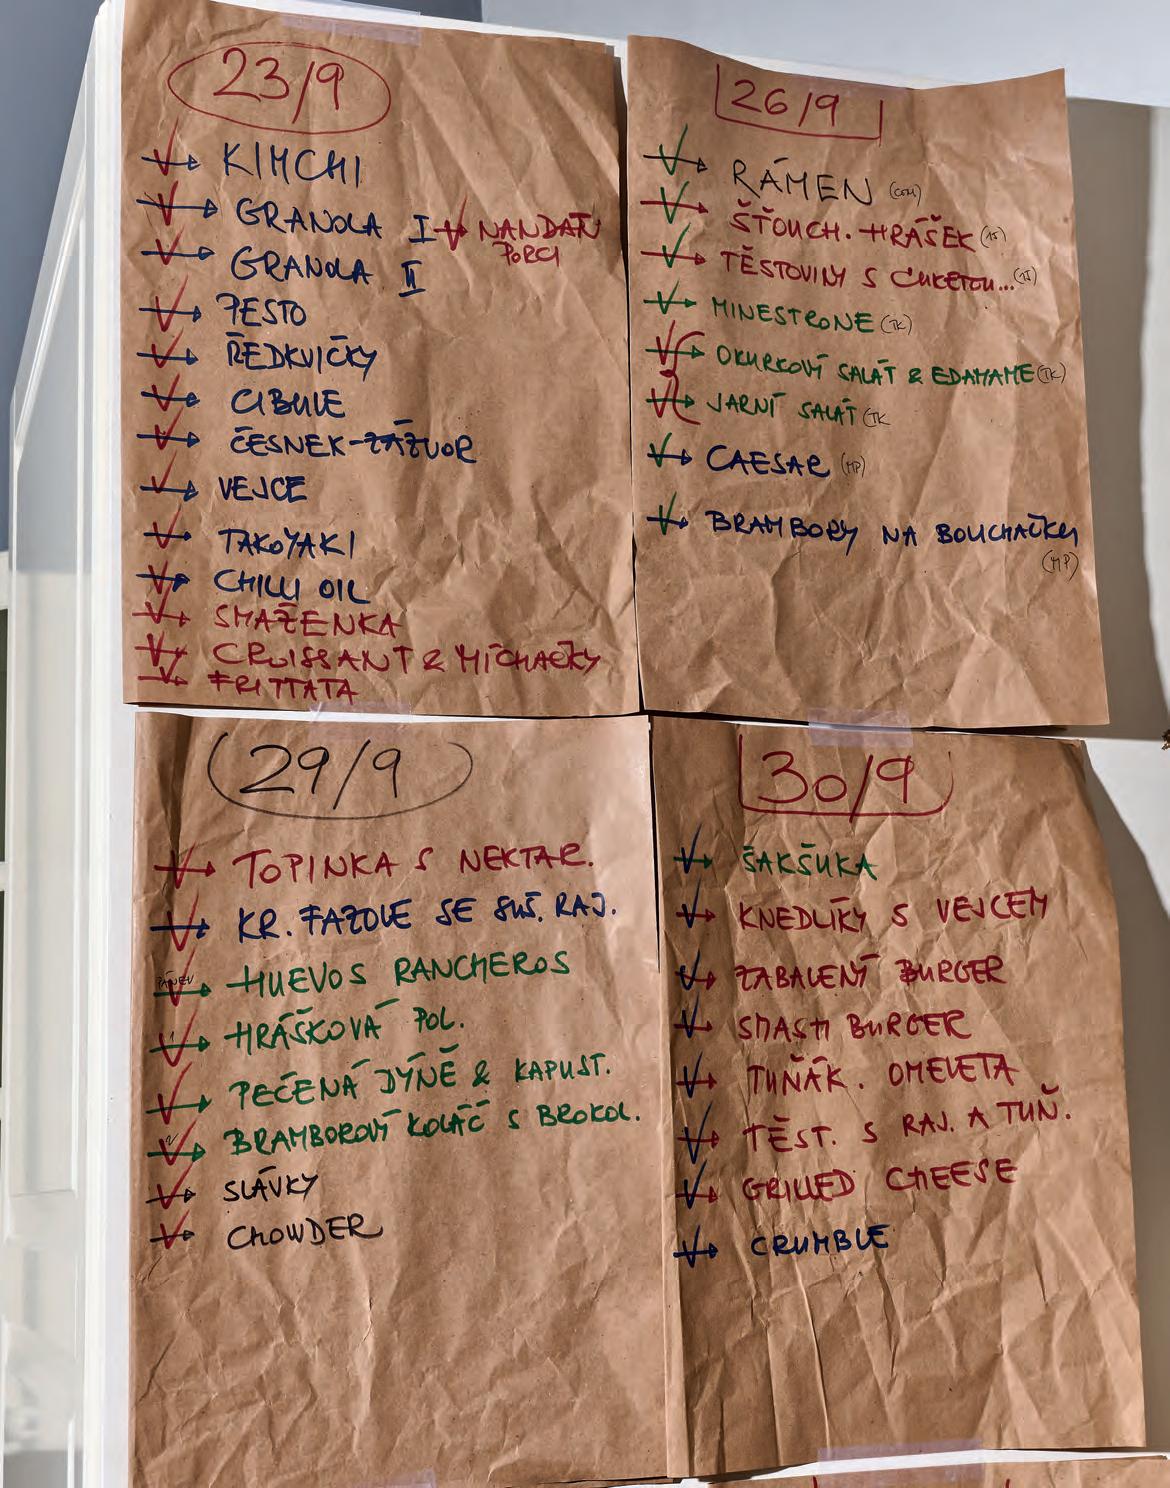 23/9
KIMCHI
GRANOLA I NANDAŇ
PORCI
GRANOLA II
PESTO
ŘEDKVIČKY
CIBULE
ČESNEK-ZÁZVOR
VEJCE
TAKOYAKI
CHILLI OIL
SMAŽENKA
CROISSANT & MÍCHAČKY
FRITTATA
26/9
RÁMEN
ŠŤOUCH. HRÁŠEK
TĚSTOVINY S CUKETOU...
MINESTRONE (TK)
OKURKOVÝ SALÁT & EDAMAME (TK)
JARNÍ SALÁT (TK
CAESAR (MP)
BRAMBORY NA BOUCHAČKU
(MP)
29/9
TOPINKA S NEKTAR.
KR. FAZOLE SE SUŠ. RAJ.
PÁNEV
HUEVOS RANCHEROS
HRÁŠKOVÁ POL.
PEČENÁ DÝNĚ & KAPUST.
BRAMBOROVÝ KOLÁČ S BROKOL.
SLÁVKY
CHOWDER
30/9
ŠAKŠUKA
KNEDLÍKY S VEJCEM
ZABALENÝ BURGER
SMASH BURGER
TUŇÁK. OMELETA
TĚST. S RAJ. A TUŇ.
GRILLED CHEESE
CRUMBLE